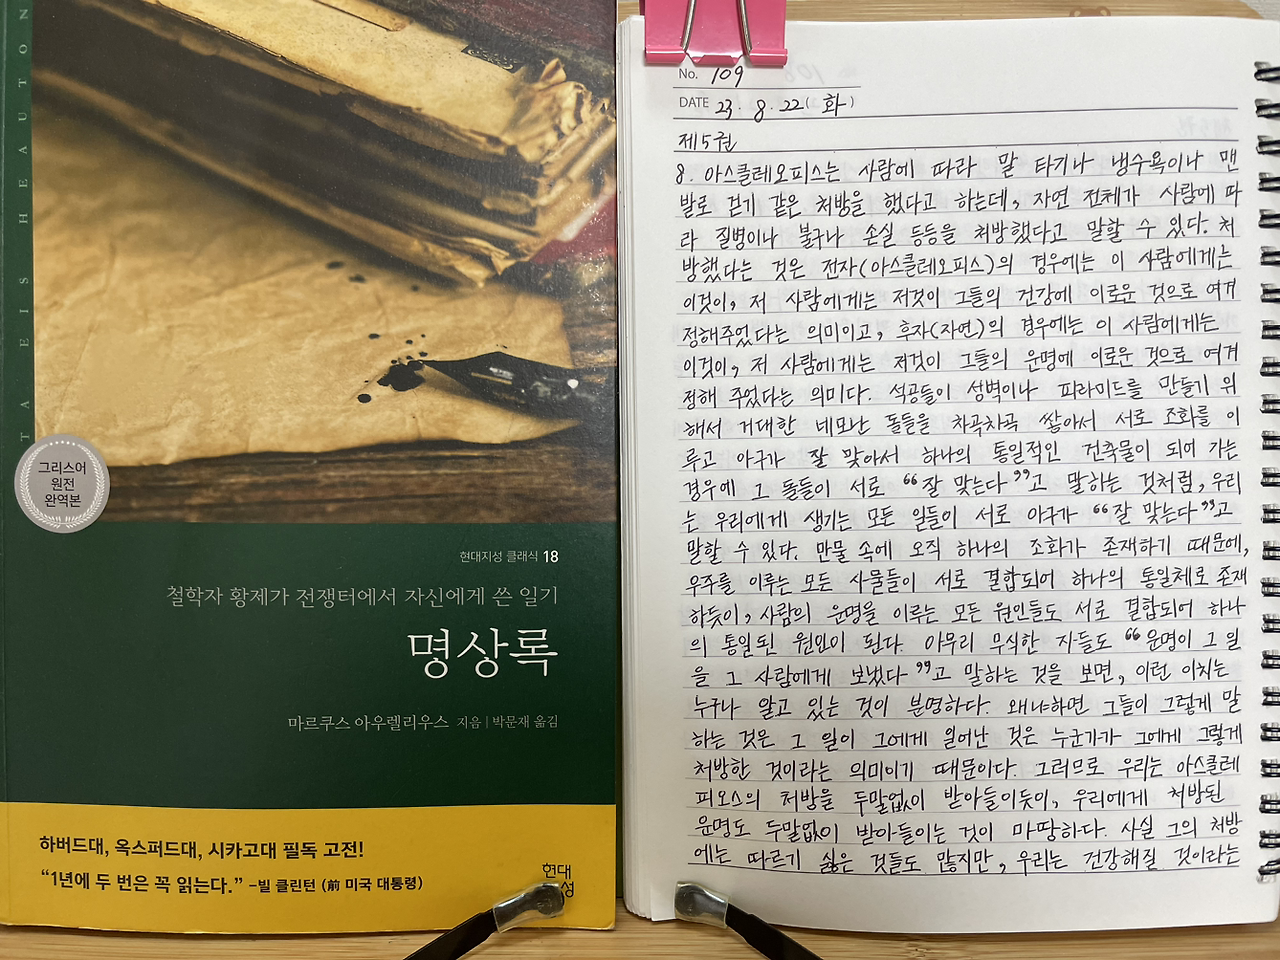 TA EIS HEAUTON
그리스어
원전
완역본
현대지성 클래식 18
철학자 황제가 전쟁터에서 자신에게 쓴 일기
명상록
마르쿠스 아우렐리우스 지음 | 박문재 옮김
하버드대, 옥스퍼드대, 시카고대 필독 고전!
“1년에 두 번은 꼭 읽는다.” -빌 클린턴 (前 미국 대통령)
현대
성
No. 109
DATE 23. 8. 22 (화)
제5권
8. 아스클레오피스는 사람에 따라 말 타기나 냉수욕이나 맨
발로 걷기 같은 처방을 했다고 하는데, 자연 전체가 사람에 따
라 질병이나 불구나 손실 등등을 처방했다고 말할 수 있다. 처
방했다는 것은 전자(아스클레오피스)의 경우에는 이 사람에게는
이것이, 저 사람에게는 저것이 그들의 건강에 이로운 것으로 여겨
정해주었다는 의미이고, 후자(자연)의 경우에는 이 사람에게는
이것이, 저 사람에게는 저것이 그들의 운명에 이로운 것으로 여겨
정해 주었다는 의미다. 석공들이 성벽이나 피라미드를 만들기 위
해서 거대한 네모난 돌들을 차곡차곡 쌓아서 서로 조화를 이
루고 아구가 잘 맞아서 하나의 통일적인 건축물이 되어 가는
경우에 그 돌들이 서로 “잘 맞는다”고 말하는 것처럼, 우리
는 우리에게 생기는 모든 일들이 서로 아구가 “잘 맞는다”고
말할 수 있다. 만물 속에 오직 하나의 조화가 존재하기 때문에,
우주를 이루는 모든 사물들이 서로 결합되어 하나의 통일체로 존재
하듯이, 사람의 운명을 이루는 모든 원인들도 서로 결합되어 하나
의 통일된 원인이 된다. 아무리 무식한 자들도 “운명이 그 일
을 그 사람에게 보냈다”고 말하는 것을 보면, 이런 이치는
누구나 알고 있는 것이 분명하다. 왜냐하면 그들이 그렇게 말
하는 것은 그 일이 그에게 일어난 것은 누군가가 그에게 그렇게
처방한 것이라는 의미이기 때문이다. 그러므로 우리는 아스클레
피오스의 처방을 두말없이 받아들이듯이, 우리에게 처방된
운명도 두말없이 받아들이는 것이 마땅하다. 사실 그의 처방
에는 따르기 싫은 것들도 많지만, 우리는 건강해질 것이라는